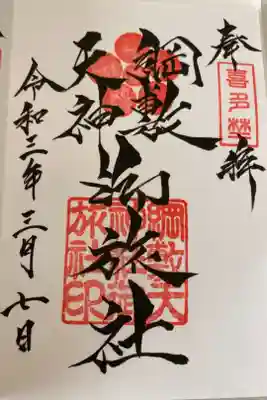 奉拝
喜多埜
綱敷
天神
御旅社
綱敷天
神社御
旅社印
令和三年三月七日